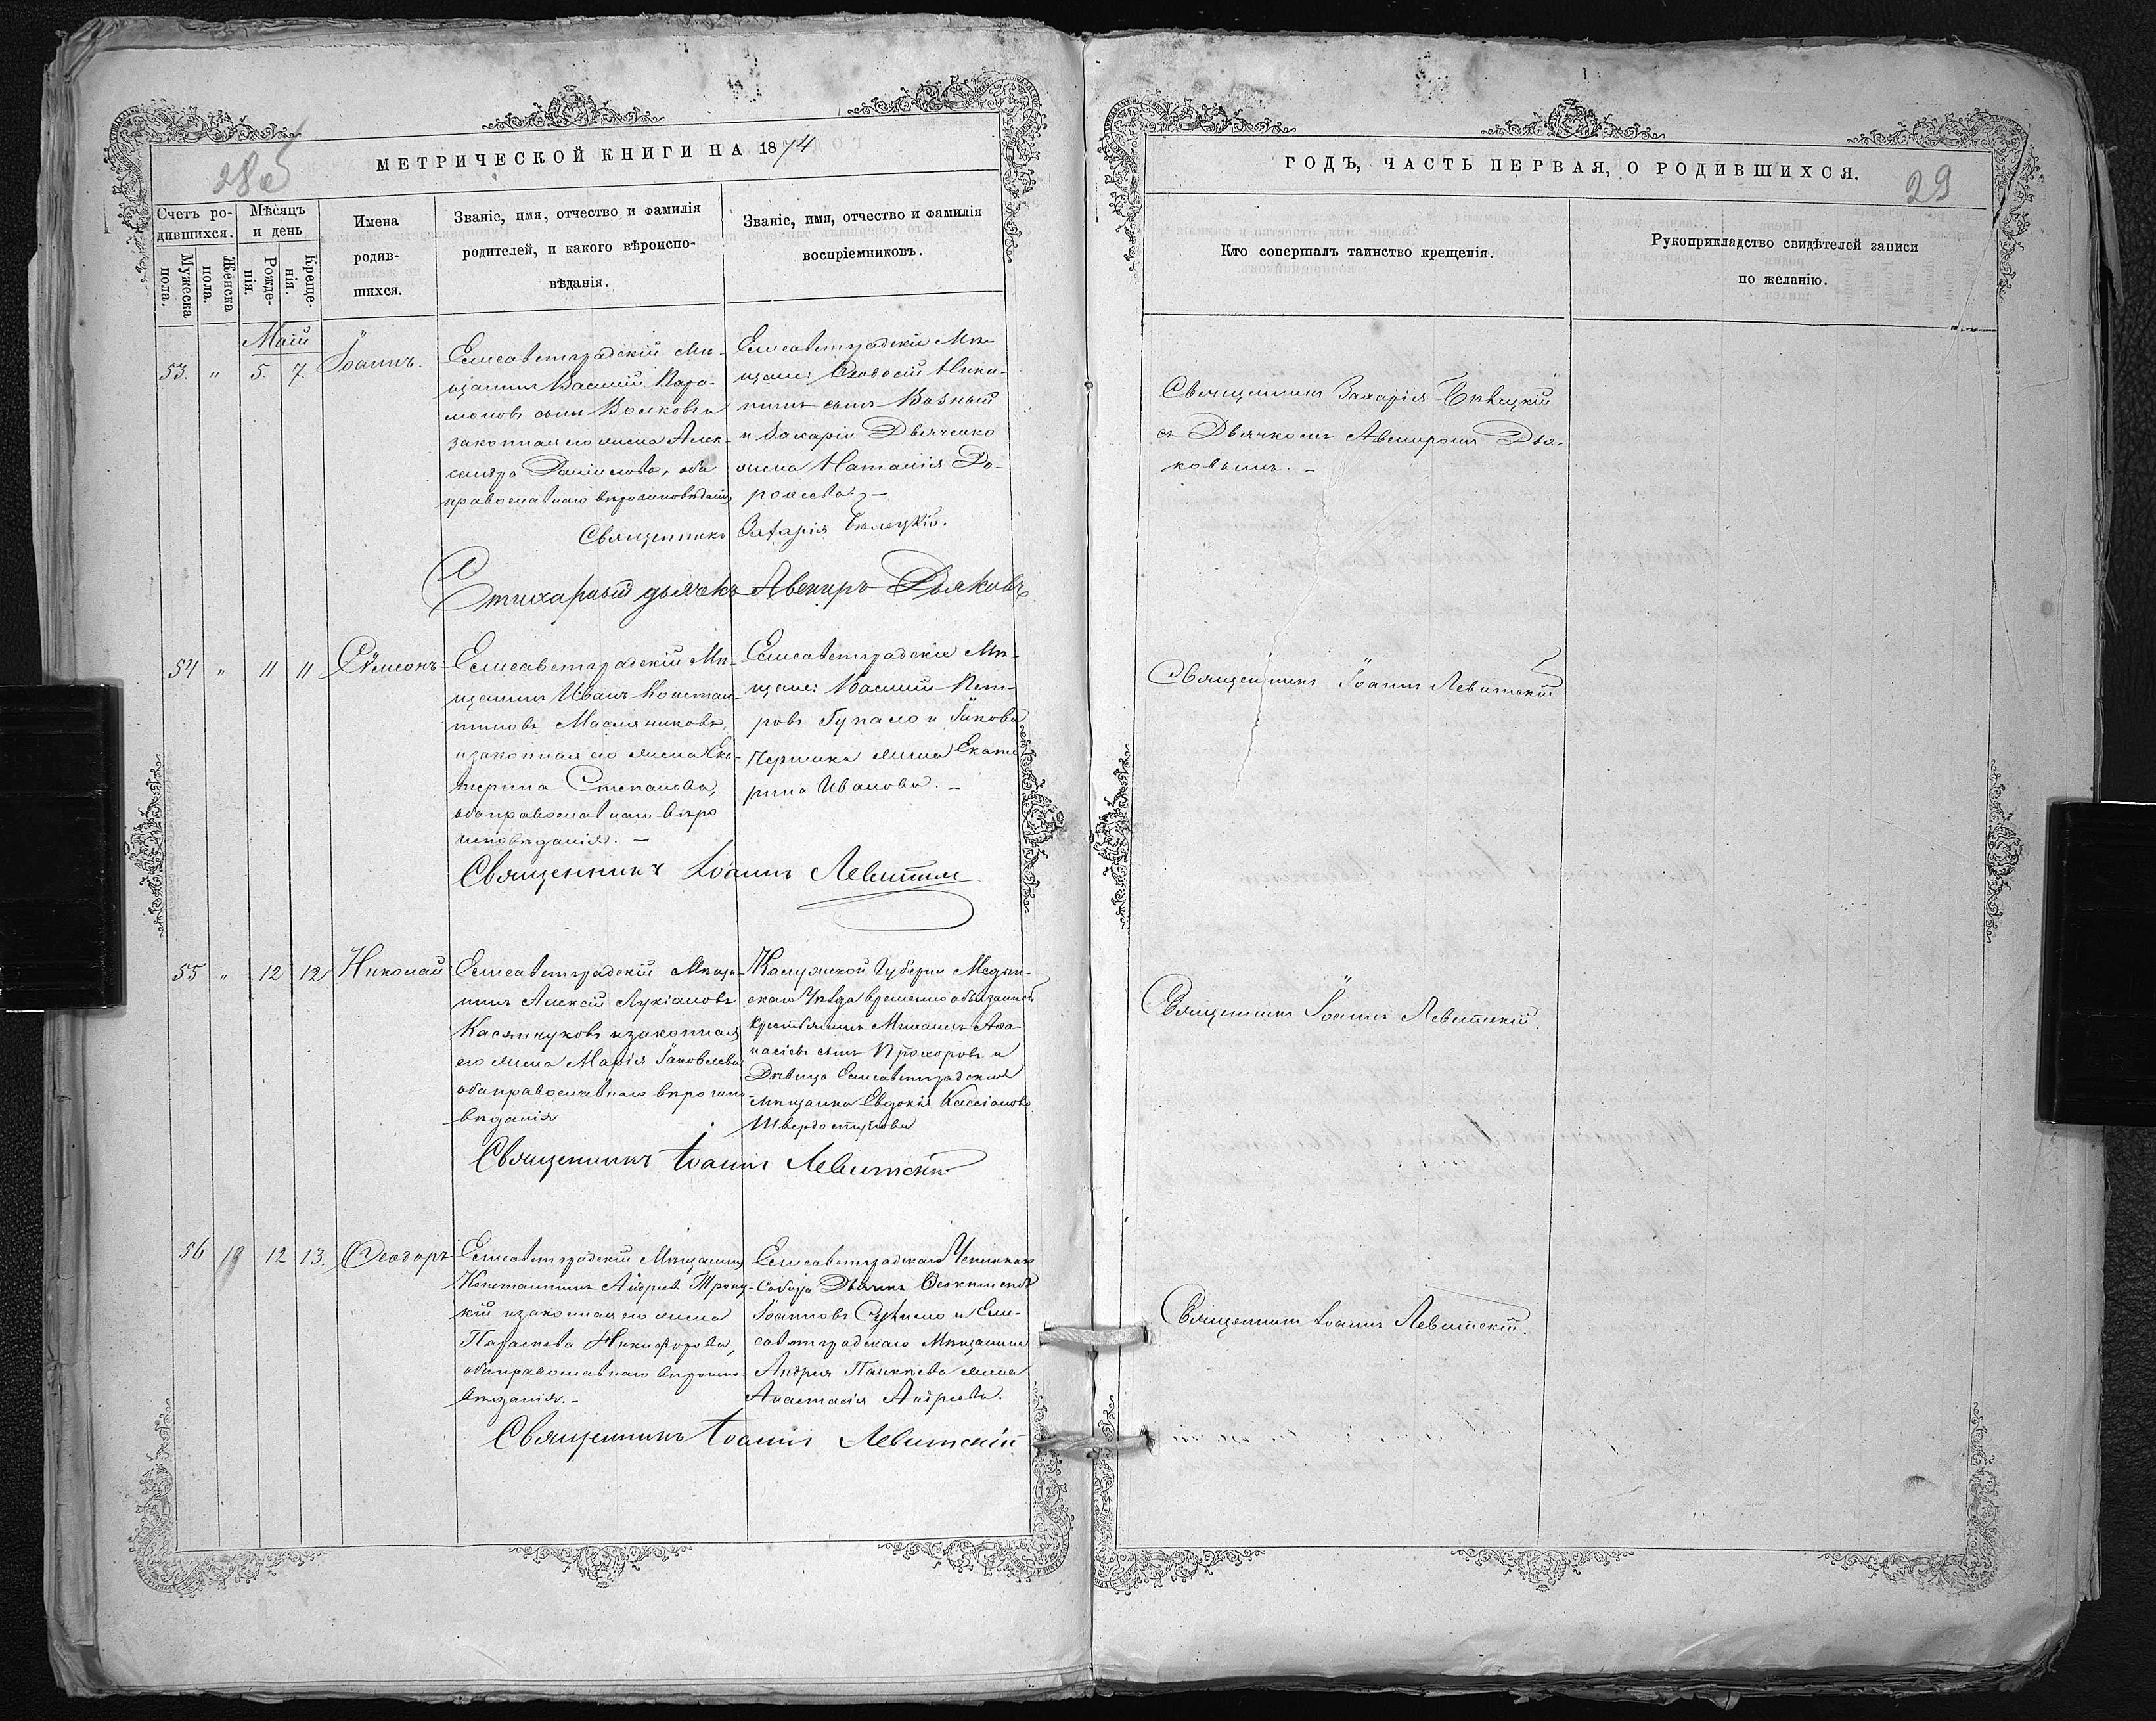 28 об
МЕТРИЧЕСКОЙ КНИГИ НА 1874
Счетъ ро-
дившихся.
Мужеска
пола.
Женска
пола.
Мѣсяцъ
и день
Рожде-
нія.
Креще-
нія.
Имена
родив-
шихся.
Званіе, имя, отчество и фамилія
родителей, и какого вѣроиспо-
вѣданія.
Званіе, имя, отчество и фамилія
воспріемниковъ.
Маій
53. " 5. 7. Іоаннъ.
Елисаветградскій Мѣ-
щанинъ Василій Пара-
моновъ сынъ Волковъ и
законная его жена Алек-
сандра Даніилова, оба
православнаго вѣроисповѣданія
Елисаветградскіе Мѣ-
щане: Ѳеодосій Ники-
тинъ сынъ Возный
и Захарія Дьяченко
жена Наталія До-
роѳеева. –
Священникъ Захарія Бѣлецкій.
Стихарный дьячекъ Авениръ Дьяковъ
54 " 11 11 Сѵмеонъ
Елисаветградскій Мѣ-
щанинъ Иванъ Констан-
тиновъ Масляниковъ,
и законная его жена Ека-
терина Степанова,
оба православнаго вѣро
исповѣданія. –
Елисаветградскіе Мѣ-
щане: Василій Пет-
ровъ и Іакова
жена Екате
рина Иванова. –
Священникъ Іоаннъ Левитскій
55 " 12 12 Николай
Елисаветградскій Мѣща-
нинъ Алексій Лукіановъ
Касянчуковъ и законная
его жена Марія Іаковлева
оба православнаго вѣроиспо-
вѣданія
Калужской Губерніи Медын-
скаго Уѣзда временно обязанный
крестьянинъ Михаилъ Аѳа-
насіевъ сынъ Прохоровъ и
Дѣвица Елисаветградская
Мѣщанка Евдокія Кассіанова
Священникъ Іоаннъ Левитскій
56 12 13. Ѳеодоръ
Елисаветградскій Мѣщанинъ
Константинъ Андреевъ Троиц-
кій и законная его жена
Параскева Никифорова,
оба православнаго вѣроиспо-
вѣданія. –
Елисаветградскаго Успенскаго
Собора Дьячекъ Ѳеоктистъ
Іоанновъ и Ели-
саветградскаго Мѣщанина
Андрея жена
Анастасія Андреева.
Священникъ Іоаннъ Левитскій
ГОДЪ, ЧАСТЬ ПЕРВАЯ, О РОДИВШИХСЯ.
29
Кто совершалъ таинство крещенія.
Рукоприкладство свидѣтелей записи
по желанію.
Священникъ Захарія Бѣлецкій
съ Дьячкомъ Авениромъ Дья-
ковымъ. –
Священникъ Іоаннъ Левитскій
Священникъ Іоаннъ Левитскій.
Священникъ Іоаннъ Левитскій.